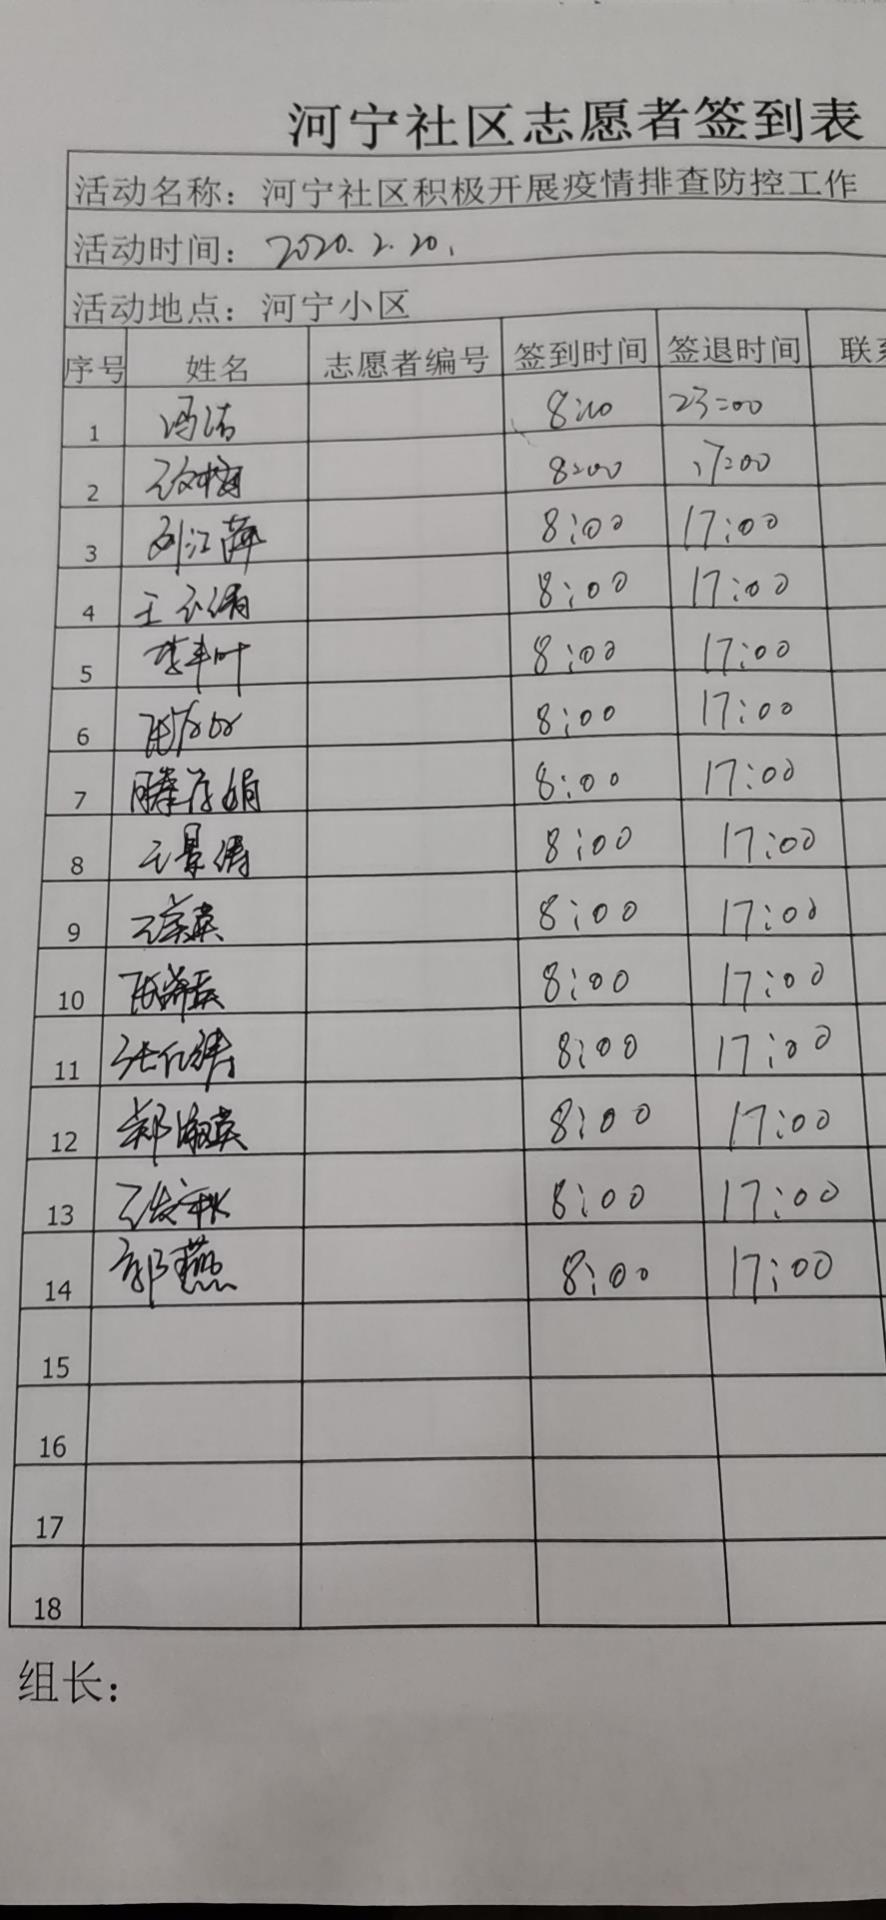 河宁社区志愿者签到表
活动名称：河宁社区积极开展疫情排查防控工作
活动时间：2020.2.20.
活动地点：河宁小区
序号 姓名 志愿者编号 签到时间 签退时间 联系
1 冯洁 23:00
2 8:00 17:00
3 刘江萍 8:00 17:00
4 8:00 17:00
5 李丰叶 8:00 17:00
6 8:00 17:00
7 8:00 17:00
8 王景倩 8:00 17:00
9 8:00 17:00
10 8:00 17:00
11 8:00 17:00
12 郑淑英 8:00 17:00
13 8:00 17:00
14 郭燕 8:00 17:00
15
16
17
18
组长：